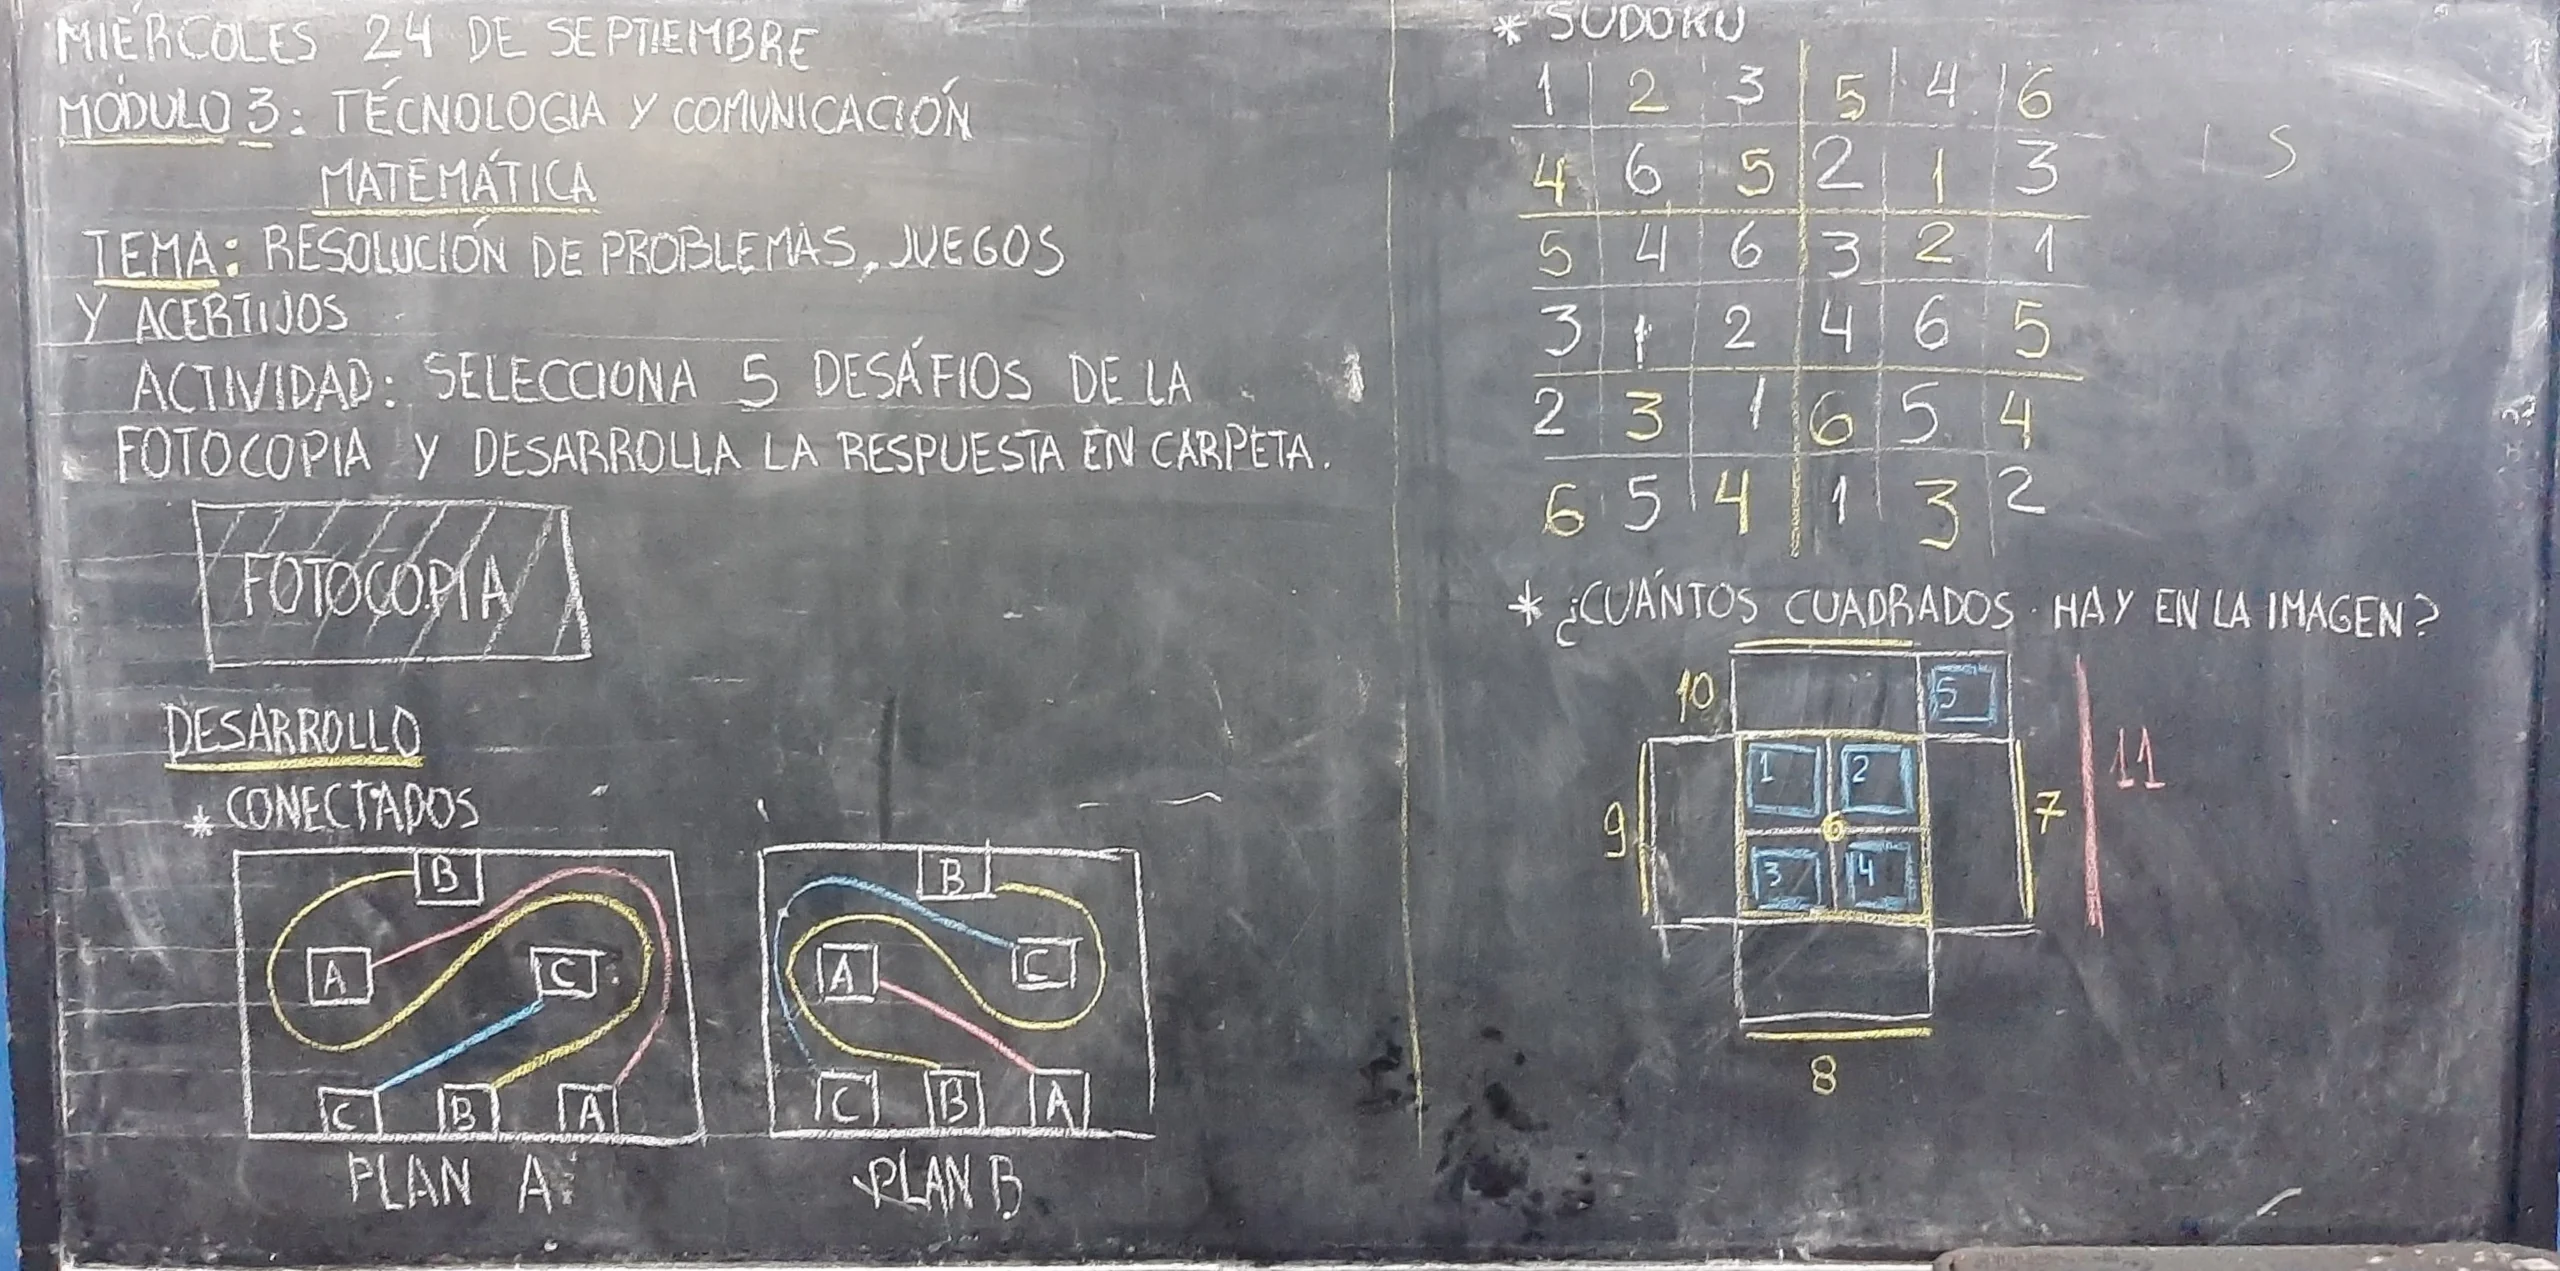 MIÉRCOLES 24 DE SEPTIEMBRE
MÓDULO 3: TÉCNOLOGIA Y COMUNICACIÓN
MATEMÁTICA
TEMA: RESOLUCIÓN DE PROBLEMAS, JUEGOS
Y ACERTIJOS
ACTIVIDAD: SELECCIONA 5 DESÁFIOS DE LA
FOTOCOPIA Y DESARROLLA LA RESPUESTA EN CARPETA.
FOTOCOPIA
DESARROLLO
* CONECTADOS
B
A C
C B A
PLAN A
B
A C
C B A
PLAN B
* SUDOKU
1 2 3 5 4 6
4 6 5 2 1 3
5 4 6 3 2 1
3 1 2 4 6 5
2 3 1 6 5 4
6 5 4 1 3 2
1 5
* ¿CUÁNTOS CUADRADOS HAY EN LA IMAGEN?
10 5
1 2
9 6 7 11
3 4
8